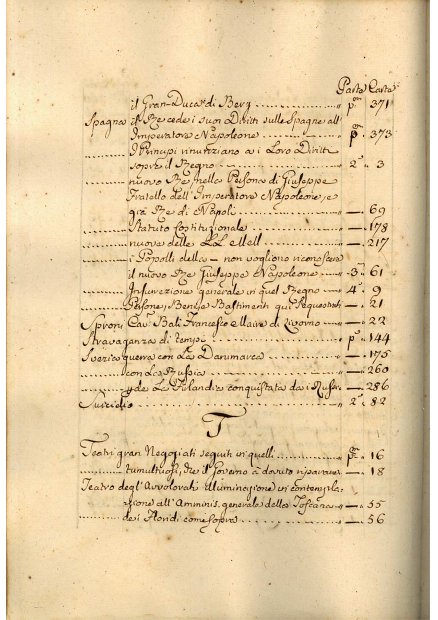 Parte Carta
il Gran-Duca di Berg ........ pᵃ 371
Spagna il Re cede i suoi Diritti sulle Spagne all'
Imperatore Napoleone ........ pᵃ 373
I Principi rinunziano ai Loro Diritti
sopra il Regno ........ 2ᵃ 3
nuovo Re nella Persona di Giuseppe
Fratello dell'Imperatore Napoleone, e
già Re di Napoli ........ — 69
Statuto Costituzionale ........ — 178
nuove delle LL. MM. ........ — 217
i Popolli della — non vogliono riconoscere
il nuovo Re Giuseppe Napoleone ........ 3ᵃ 61
Insurezione generale in quel Regno 4ᵃ 9
Persone, Beni, e Bastimenti qui Sequestrati — 21
Sproni Cavʳ Balì Francesco Maire di Livorno — 22
Stravaganza di tempi ........ pᵃ 144
Svezia guerra con La Danimarca — 175
con La Russia ........ — 260
de La Finlandia conquistata dai Russi — 286
Suicidio ........ 2ᵃ 82
T
Teatri gran Negoziati seguiti in quelli ........ pᵃ 16
tumultuosi, che il Governo à dovuto riparare — 18
Teatro degl'Avvalorati Illuminazione in contempla-
zione all'Amminis. generale della Toscana — 55
dei Floridi come sopra ........ — 56